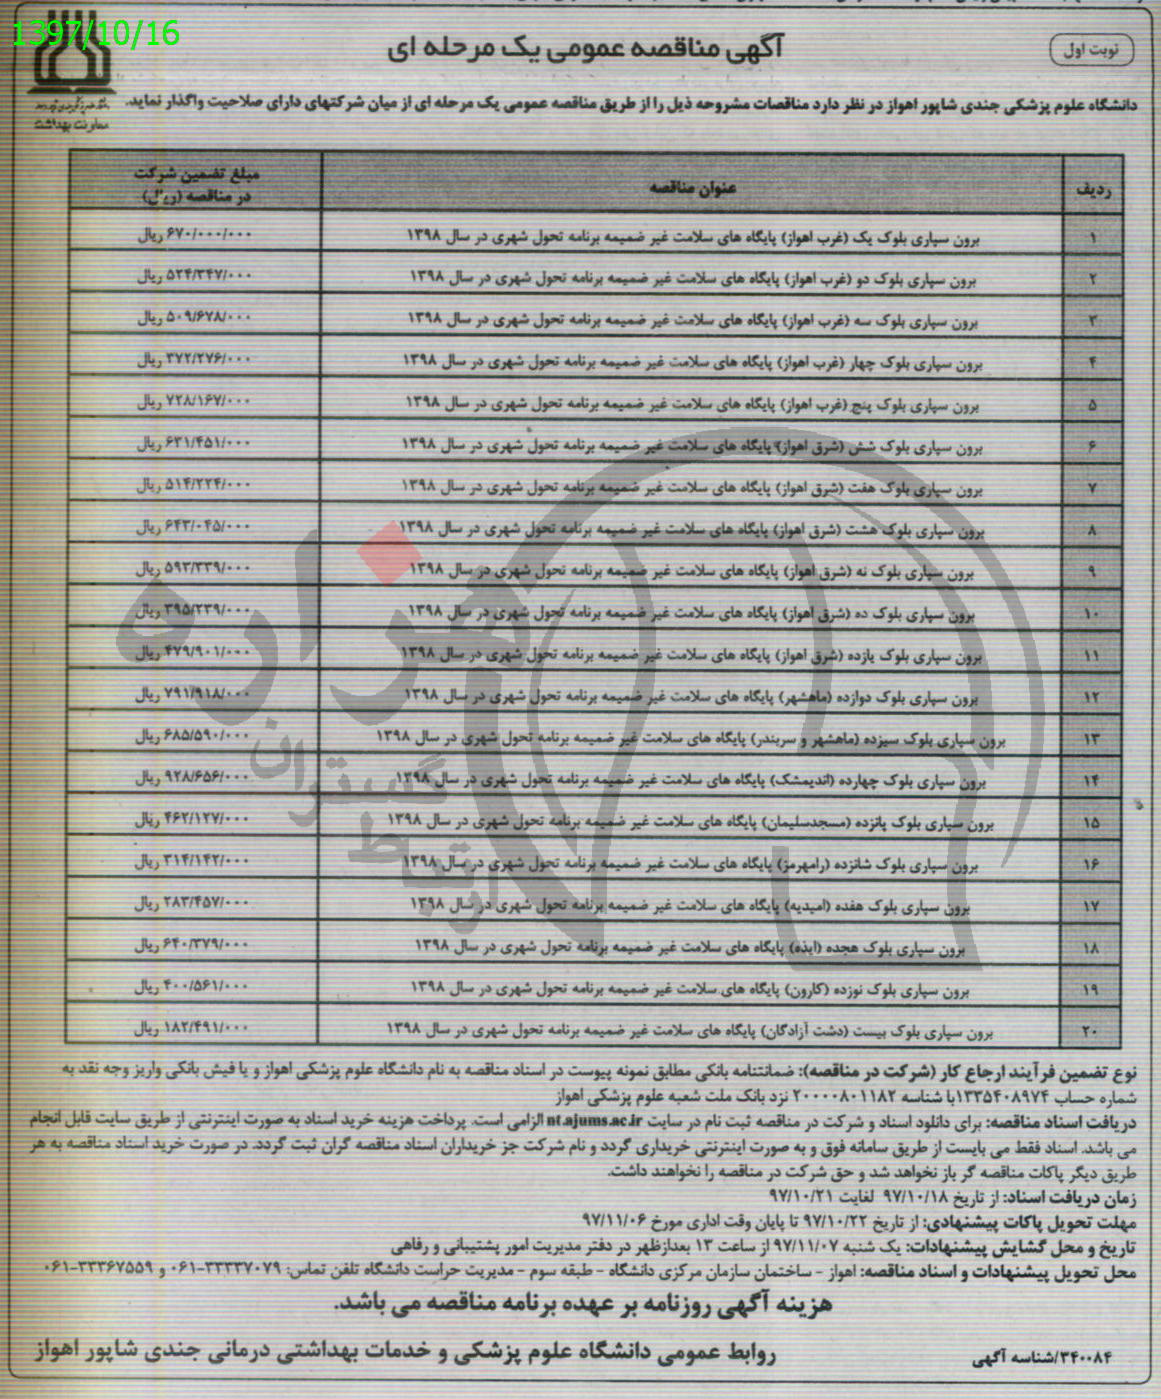 1397/10/16
نوبت اول
آگهی مناقصه عمومی یک مرحله ای
معاونت بهداشت
دانشگاه علوم پزشکی جندی شاپور اهواز در نظر دارد مناقصات مشروحه ذیل را از طریق مناقصه عمومی یک مرحله ای از میان شرکتهای دارای صلاحیت واگذار نماید.
ردیف عنوان مناقصه مبلغ تضمین شرکت در مناقصه (ریال)
۱ برون سپاری بلوک یک (غرب اهواز) پایگاه های سلامت غیر ضمیمه برنامه تحول شهری در سال ۱۳۹۸ ۶۷۰/۰۰۰/۰۰۰ ریال
۲ برون سپاری بلوک دو (غرب اهواز) پایگاه های سلامت غیر ضمیمه برنامه تحول شهری در سال ۱۳۹۸ ۵۲۴/۳۴۷/۰۰۰ ریال
۳ برون سپاری بلوک سه (غرب اهواز) پایگاه های سلامت غیر ضمیمه برنامه تحول شهری در سال ۱۳۹۸ ۵۰۹/۶۷۸/۰۰۰ ریال
۴ برون سپاری بلوک چهار (غرب اهواز) پایگاه های سلامت غیر ضمیمه برنامه تحول شهری در سال ۱۳۹۸ ۳۷۲/۲۷۶/۰۰۰ ریال
۵ برون سپاری بلوک پنج (غرب اهواز) پایگاه های سلامت غیر ضمیمه برنامه تحول شهری در سال ۱۳۹۸ ۷۲۸/۱۶۷/۰۰۰ ریال
۶ برون سپاری بلوک شش (شرق اهواز) پایگاه های سلامت غیر ضمیمه برنامه تحول شهری در سال ۱۳۹۸ ۶۳۱/۴۵۱/۰۰۰ ریال
۷ برون سپاری بلوک هفت (شرق اهواز) پایگاه های سلامت غیر ضمیمه برنامه تحول شهری در سال ۱۳۹۸ ۵۱۴/۲۲۴/۰۰۰ ریال
۸ برون سپاری بلوک هشت (شرق اهواز) پایگاه های سلامت غیر ضمیمه برنامه تحول شهری در سال ۱۳۹۸ ۶۴۳/۰۴۵/۰۰۰ ریال
۹ برون سپاری بلوک نه (شرق اهواز) پایگاه های سلامت غیر ضمیمه برنامه تحول شهری در سال ۱۳۹۸ ۵۹۳/۳۳۹/۰۰۰ ریال
۱۰ برون سپاری بلوک ده (شرق اهواز) پایگاه های سلامت غیر ضمیمه برنامه تحول شهری در سال ۱۳۹۸ ۳۹۵/۲۳۹/۰۰۰ ریال
۱۱ برون سپاری بلوک یازده (شرق اهواز) پایگاه های سلامت غیر ضمیمه برنامه تحول شهری در سال ۱۳۹۸ ۴۷۹/۹۰۱/۰۰۰ ریال
۱۲ برون سپاری بلوک دوازده (ماهشهر) پایگاه های سلامت غیر ضمیمه برنامه تحول شهری در سال ۱۳۹۸ ۷۹۱/۹۱۸/۰۰۰ ریال
۱۳ برون سپاری بلوک سیزده (ماهشهر و سربندر) پایگاه های سلامت غیر ضمیمه برنامه تحول شهری در سال ۱۳۹۸ ۶۸۵/۵۹۰/۰۰۰ ریال
۱۴ برون سپاری بلوک چهارده (اندیمشک) پایگاه های سلامت غیر ضمیمه برنامه تحول شهری در سال ۱۳۹۸ ۹۲۸/۶۵۶/۰۰۰ ریال
۱۵ برون سپاری بلوک پانزده (مسجدسلیمان) پایگاه های سلامت غیر ضمیمه برنامه تحول شهری در سال ۱۳۹۸ ۴۶۲/۱۲۷/۰۰۰ ریال
۱۶ برون سپاری بلوک شانزده (رامهرمز) پایگاه های سلامت غیر ضمیمه برنامه تحول شهری در سال ۱۳۹۸ ۳۱۴/۱۴۲/۰۰۰ ریال
۱۷ برون سپاری بلوک هفده (امیدیه) پایگاه های سلامت غیر ضمیمه برنامه تحول شهری در سال ۱۳۹۸ ۲۸۳/۴۵۷/۰۰۰ ریال
۱۸ برون سپاری بلوک هجده (ایذه) پایگاه های سلامت غیر ضمیمه برنامه تحول شهری در سال ۱۳۹۸ ۶۴۰/۳۷۹/۰۰۰ ریال
۱۹ برون سپاری بلوک نوزده (کارون) پایگاه های سلامت غیر ضمیمه برنامه تحول شهری در سال ۱۳۹۸ ۴۰۰/۵۶۱/۰۰۰ ریال
۲۰ برون سپاری بلوک بیست (دشت آزادگان) پایگاه های سلامت غیر ضمیمه برنامه تحول شهری در سال ۱۳۹۸ ۱۸۲/۴۹۱/۰۰۰ ریال
هزاره
گستران
ارتباط
نوع تضمین فرآیند ارجاع کار (شرکت در مناقصه): ضمانتنامه بانکی مطابق نمونه پیوست در اسناد مناقصه به نام دانشگاه علوم پزشکی اهواز و یا فیش بانکی واریز وجه نقد به
شماره حساب ۱۳۳۵۴۰۸۹۷۴با شناسه ۲۰۰۰۰۸۰۱۱۸۲ نزد بانک ملت شعبه علوم پزشکی اهواز
دریافت اسناد مناقصه: برای دانلود اسناد و شرکت در مناقصه ثبت نام در سایت nt.ajums.ac.ir الزامی است. پرداخت هزینه خرید اسناد به صورت اینترنتی از طریق سایت قابل انجام
می باشد. اسناد فقط می بایست از طریق سامانه فوق و به صورت اینترنتی خریداری گردد و نام شرکت جز خریداران اسناد مناقصه گران ثبت گردد. در صورت خرید اسناد مناقصه به هر
طریق دیگر پاکات مناقصه گر باز نخواهد شد و حق شرکت در مناقصه را نخواهند داشت.
زمان دریافت اسناد: از تاریخ ۹۷/۱۰/۱۸ لغایت ۹۷/۱۰/۲۱
مهلت تحویل پاکات پیشنهادی: از تاریخ ۹۷/۱۰/۲۲ تا پایان وقت اداری مورخ ۹۷/۱۱/۰۶
تاریخ و محل گشایش پیشنهادات: یک شنبه ۹۷/۱۱/۰۷ از ساعت ۱۳ بعدازظهر در دفتر مدیریت امور پشتیبانی و رفاهی
محل تحویل پیشنهادات و اسناد مناقصه: اهواز - ساختمان سازمان مرکزی دانشگاه - طبقه سوم - مدیریت حراست دانشگاه تلفن تماس: ۳۳۳۳۷۰۷۹-۰۶۱ و ۳۳۳۶۷۵۵۹-۰۶۱
هزینه آگهی روزنامه بر عهده برنامه مناقصه می باشد.
روابط عمومی دانشگاه علوم پزشکی و خدمات بهداشتی درمانی جندی شاپور اهواز
۳۴۰۰۸۴/شناسه آگهی